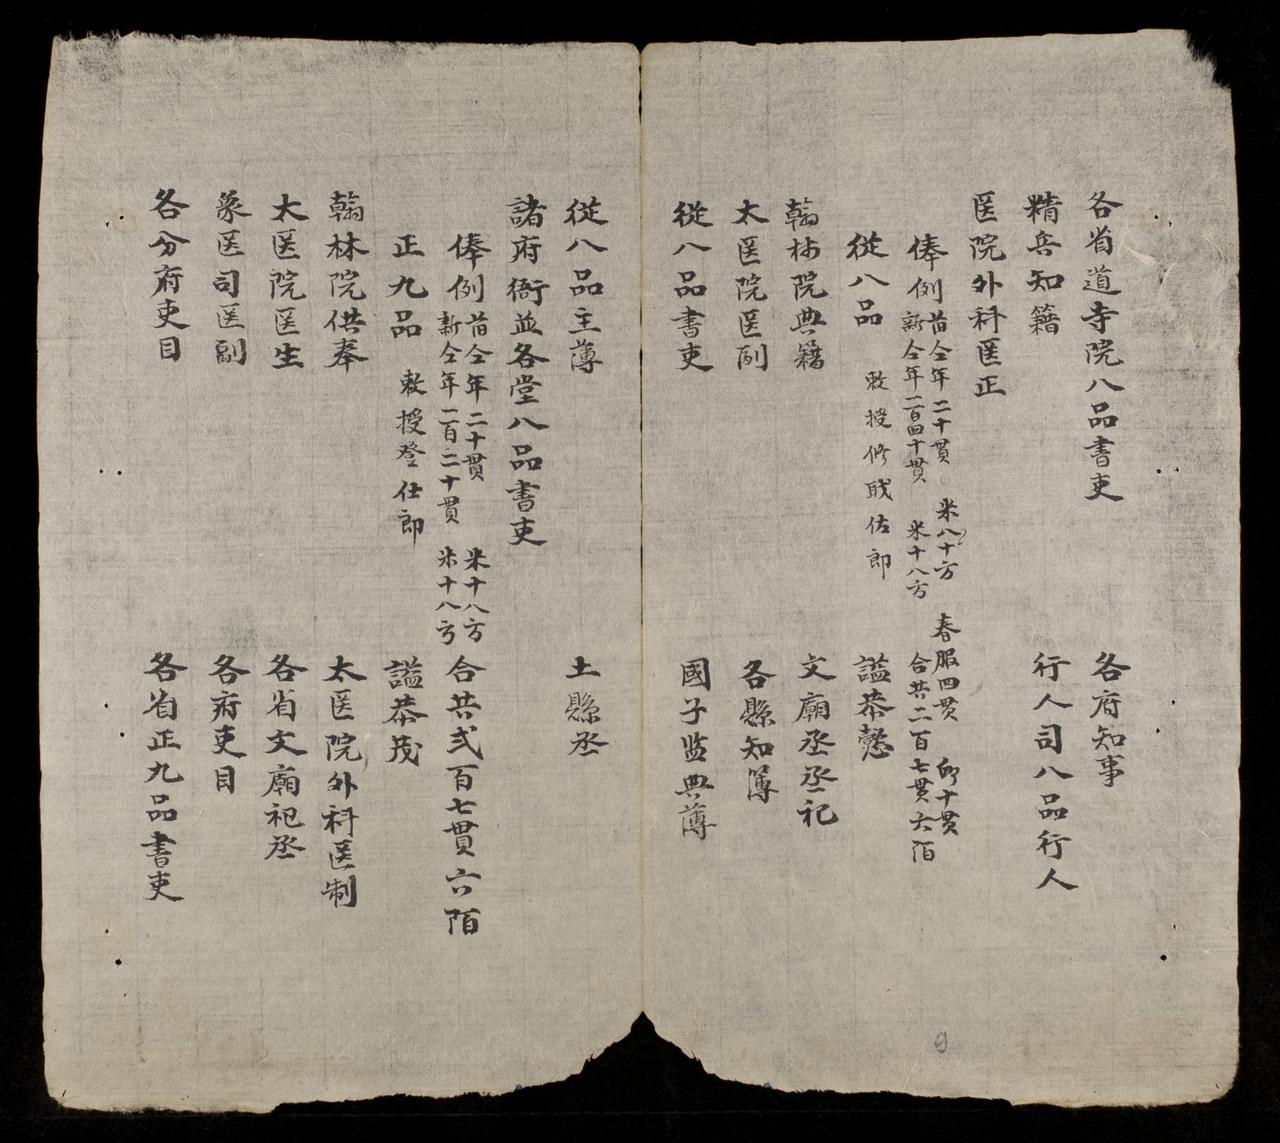 各省道寺院八品書吏 各府知事
精兵知籍 行人司八品行人
医院外科医正
俸例 昔仝年二十貫 米八十方 春服四贯 卹十貫
新仝年一百四十貫 米十八方 合共二百七貫六陌
從八品 敕授修職佐郎 謚恭愨
翰林院典籍 文廟丞丞祀
太医院医副 各縣知簿
從八品書吏 國子监典薄
從八品主薄 土縣丞
諸府衙並各堂八品書吏
俸例 昔仝年二十貫 米十八方
新仝年一百二十貫 米十八方 合共弍百七貫六陌
正九品 敕授登仕郎 謚恭茂
翰林院供奉 太医院外科医制
太医院医生 各省文廟祀丞
象医司医副 各府吏目
各分府吏目 各省正九品書吏
9